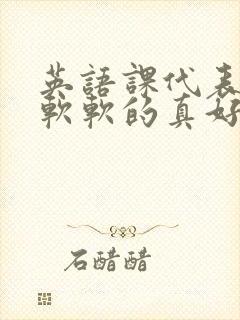 英語課代表
軟軟的真好
石醋醋